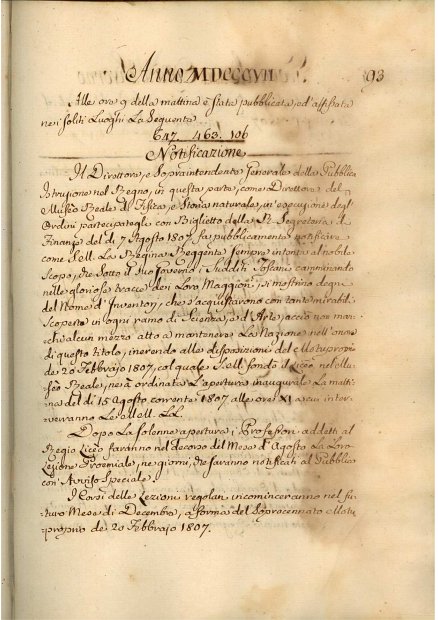 Anno MDCCCVII
93
Alle ore 9 della mattina è stata pubblicata, ed affissata
ne i soliti Luoghi La Seguente
463. 106
Notificazione
Il Direttore, e Sopraintendente Generale della Pubblica
Istruzione nel Regno, in questa parte, come Direttore del
Museo Reale di Fisica, e Storia naturale, in esecuzione degl'
Ordini partecipategli con Biglietto della R. Segreteria di
Finanze del dì 7 Agosto 1807, fa pubblicamente notificare
come S. M. La Regina Reggente sempre intenta al nobile
Scopo, che Sotto il Suo governo i Sudditi Toscani camminando
nelle gloriose tracce dei Loro Maggiori, si mostrino degni
del Nome d'Inventori, che s'acquistarono con tante mirabili
Scoperte in ogni ramo di Scienza, e d'Arte, acciò non man-
chi alcun mezzo atto a mantenere La Nazione nell'onore
di questo titolo, inerendo alle disposizioni del Motuproprio
de 20 Febbrajo 1807, col quale S. M. fondò il Liceo, nel Mu-
seo Reale, ne à ordinata L'apertura inaugurale La matti-
na del dì 15 Agosto corrente 1807 alle ore XI a cui inter-
verranno Le LL. MM.
Dopo La Solenne apertura i Professori addetti al
Regio Liceo faranno nel decorso del Mese d'Agosto La Loro
Lezione Proemiale, ne giorni, che saranno notificati al Pubblico
con Avviso Speciale.
I Corsi delle Lezioni regolari incominceranno nel fu-
turo Mese di Decembre, a forma del Soprocennato Motu-
proprio de 20 Febbrajo 1807.